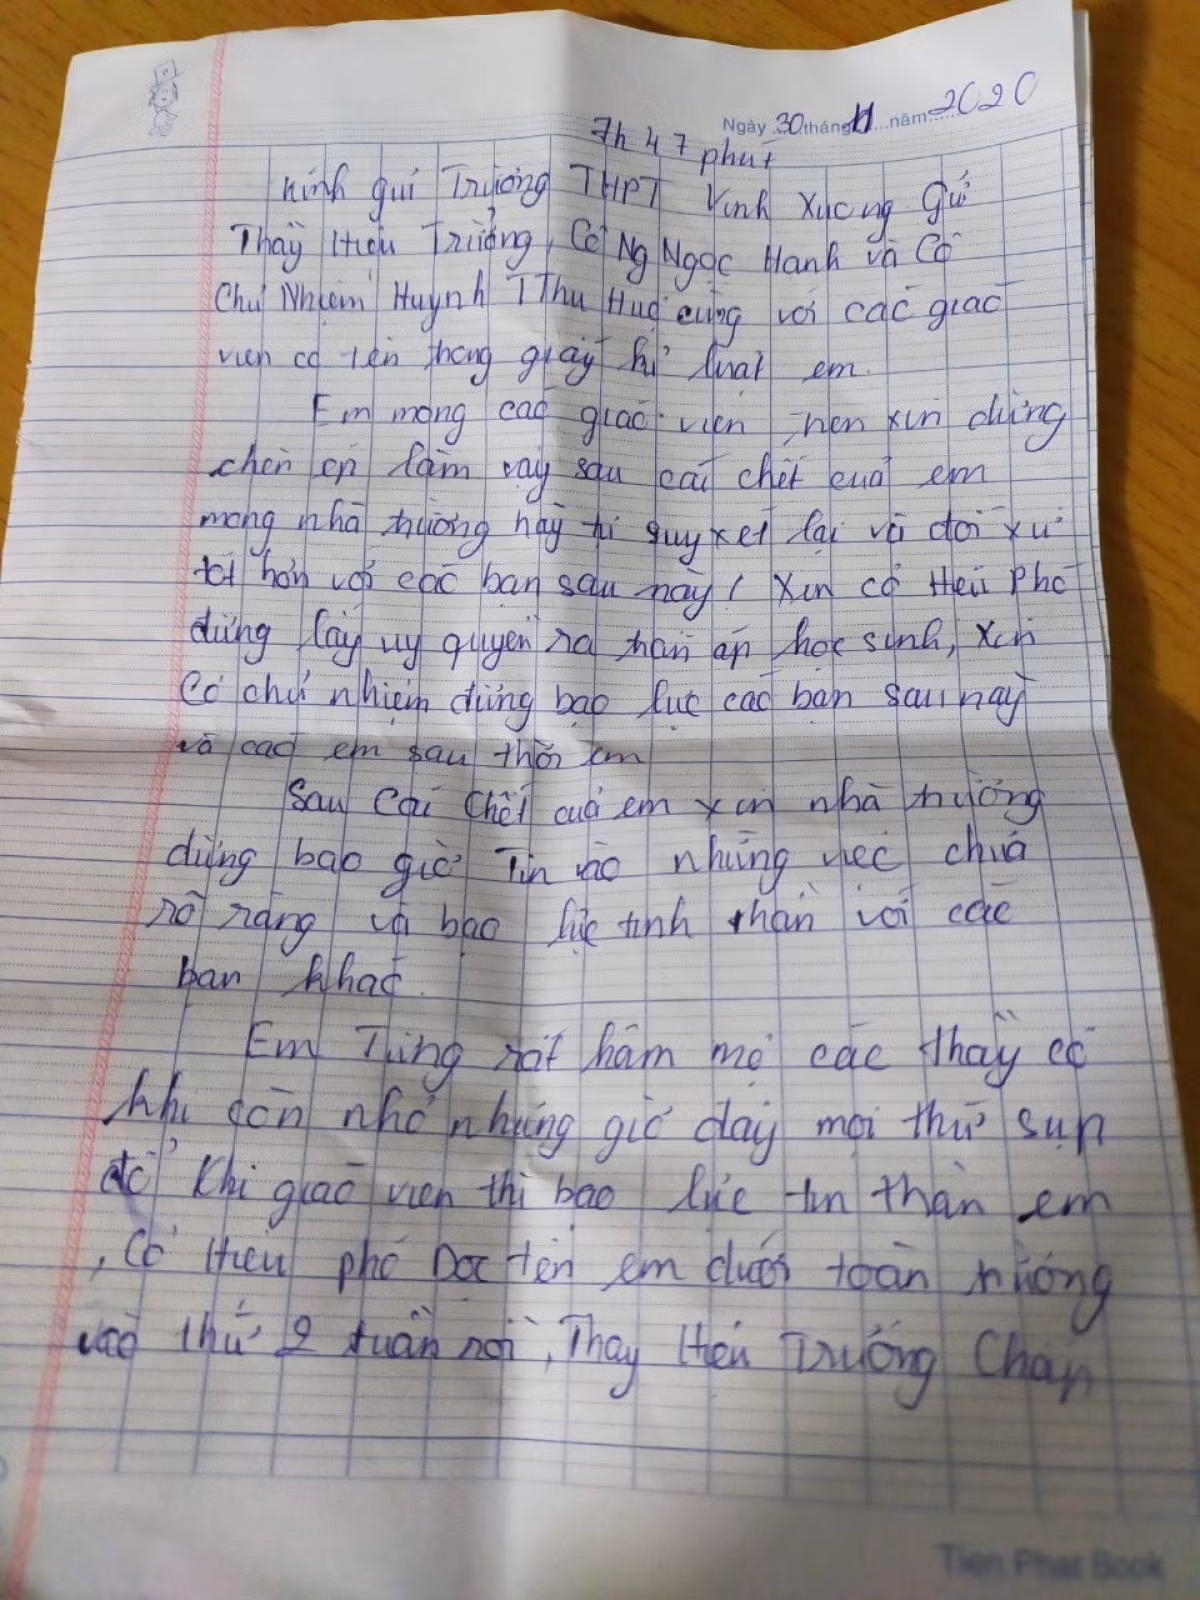 Ngày 30 tháng 11 năm 2020
7h 47 phút
Kính gửi Trường THPT Vĩnh Xương Gửi
Thầy Hiệu Trưởng, Cô Ng Ngọc Hạnh và Cô
Chủ Nhiệm Huỳnh T Thu Huệ cùng với các giáo
viên có tên trong giấy kỉ luật em.
Em mong các giáo viên trên xin đừng
chèn ép làm vậy sau cái chết của em
mong nhà trường hãy tự quyết lại và đối xử
tốt hơn với các bạn sau này! Xin cô Hiệu Phó
đừng lấy uy quyền ra trấn áp học sinh, Xin
Cô chủ nhiệm đừng bạo lực các bạn sau này
và các em sau thời em
Sau Cái Chết của em xin nhà trường
đừng bao giờ Tin vào những việc chưa
rõ ràng và bạo lực tinh thần với các
bạn khác.
Em Từng rất hâm mộ các thầy cô
khi còn nhỏ nhưng giờ đây mọi thứ sụp
đổ Khi giáo viên thì bạo lực tin thần em
, Cô Hiệu phó Đọc tên em dưới toàn trường
vào thứ 2 tuần rồi, Thầy Hiệu Trưởng Chấp
Tien Phat Book